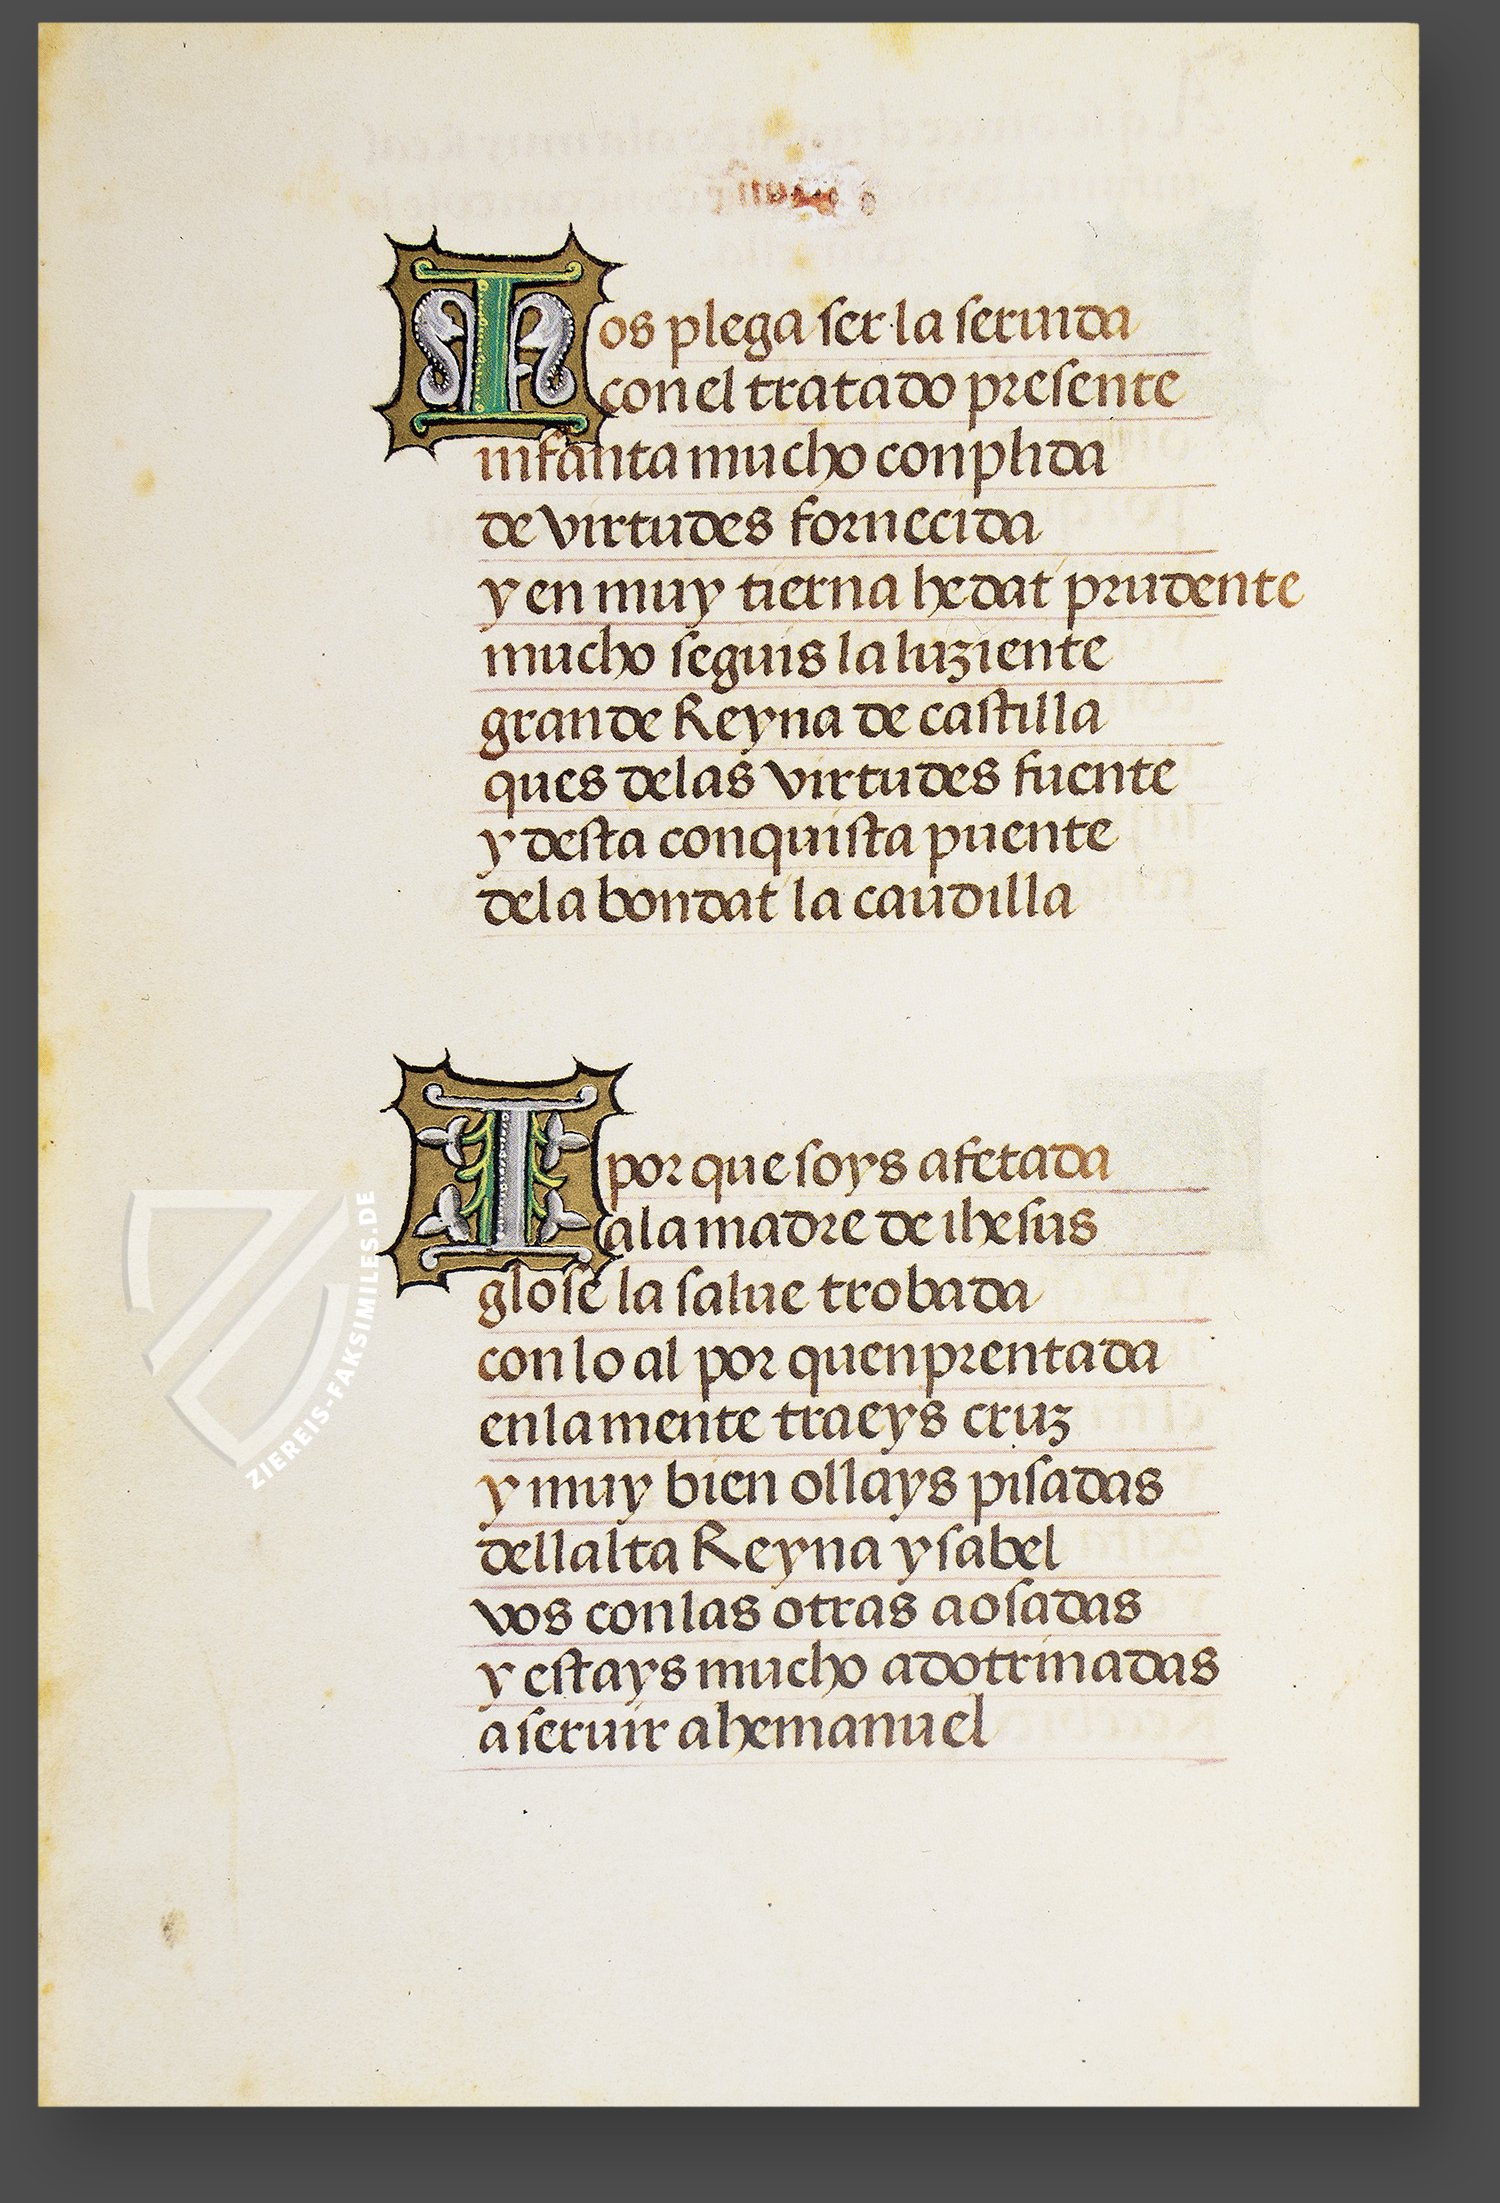 Ios plega ser la seruida
con el tratado presente
infanta mucho conplida
de virtudes fornecida
y en muy tierna hedat prudente
mucho seguis la luziente
grande Reyna de castilla
ques delas virtudes fuente
y desta conquista puente
dela bondat la caudilla
I por que soys afetada
ala madre de ihesus
glose la salue trobada
con lo al por quenprentada
enla mente traeys cruz
y muy bien ollays pisadas
dell alta Reyna ysabel
vos con las otras aosadas
y estays mucho adotrinadas
a seruir a hemanuel
ZIEREIS-FAKSIMILES.DE